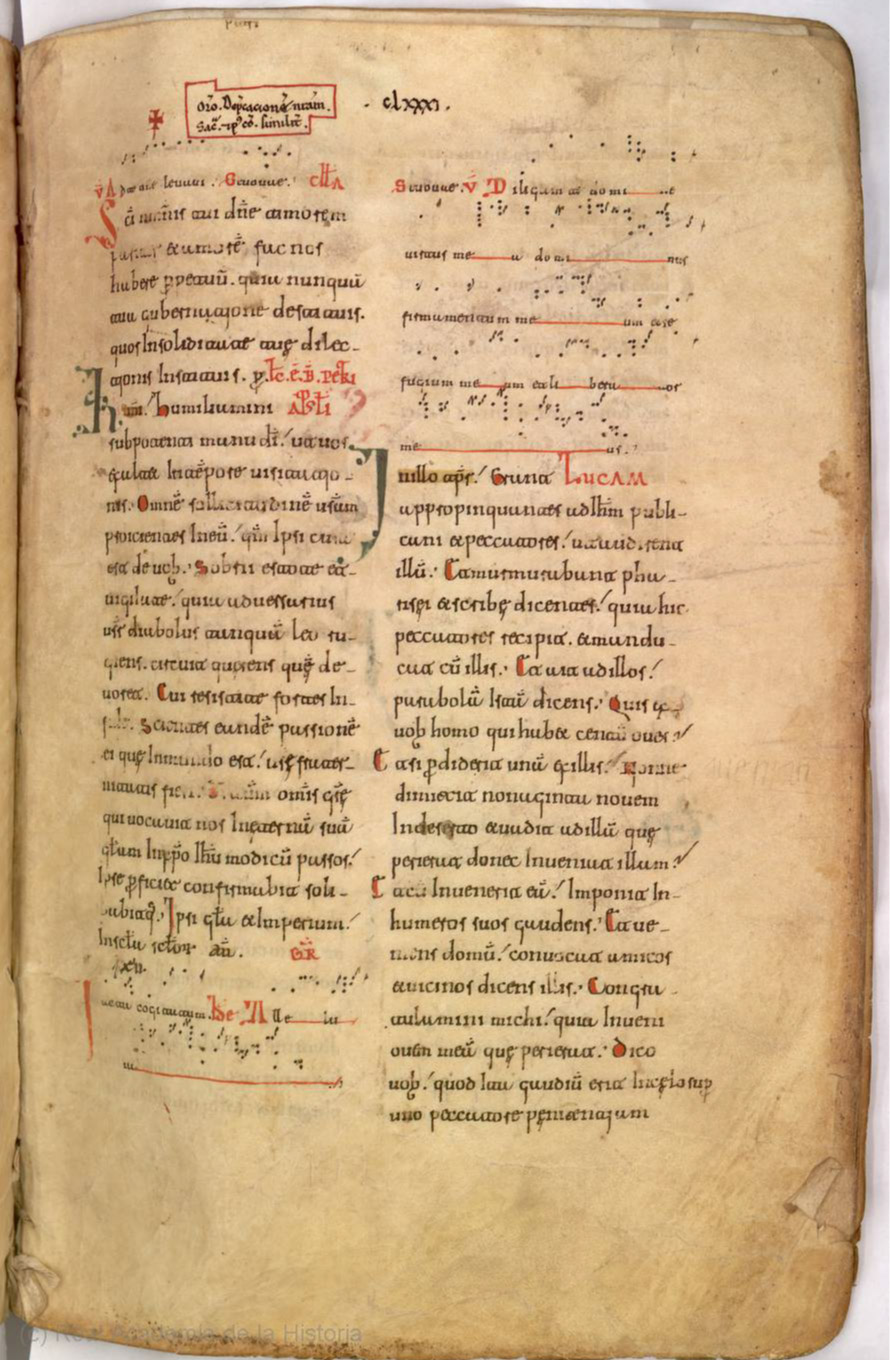 clxxxi.
Oro. Deprecationē nram.
similit.
Seruoue. cllA
Sci nominis tui dne timorem
pariter & amorē fac nos
habere ppetuū. quia nunquā
tua gubernatione destituis.
quos In soliditate tuę dilec-
tionis Instituis. p. lc. ē. B. petri
kmi. / humiliamini Apsli
sub potenti manu di. / ut uos
exaltet In tēpore uisitatio-
nis. Omnē sollicitudinē uram
proicientes In eū. / qm Ipsi cura
est de uob. Sobrii estote et
uigilate. / quia aduersarius
ur diabolus tanquā leo ru-
giens. circuit querens quē de-
uoret. Cui resistite fortes In
fide. Scientes eandē passionē
ei quę In mundo est. / urę frater-
nitatis fieri. omis grę
qui uocauit nos In eternā suā
gliam In xpo Ihu modicū passos. /
Ipse pficiet confirmabit soli-
dabitq. Ipsi gla & Imperium. /
In scla sclor am. GR
Iacta cogitatum. De. Alle lu
ia
Seruoue. V Diligam te domi ne
uirtus me a domi nus
firmamentum me um et re
fugium me um et li bera tor
me us.
In illo tpr. / Erunt LUCAM
appropinquantes ad Ihm publi-
cani & peccatores. / ut audirent
illū. Et murmurabant pha-
risei & scribę dicentes. / quia hic
peccatores recipit. & mandu-
cat cū illis. Et ait ad illos. /
parabolā Istā dicens. Quis ex
uob homo qui habet centū oues /
Et si pdiderit unā ex illis. / Nonne
dimittit nonaginta nouem
In deserto & uadit ad illā quę
perierat donec Inueniat illam /
Et cū Inuenerit eā. / Imponit In
humeros suos gaudens. Et ue-
niens domū. / conuocat amicos
& uicinos dicens illis. Congra-
tulamini michi. / quia Inueni
ouem meā quę perierat. Dico
uob. / quod Ita gaudiū erit In cęlo sup
uno peccatore pęnitentiam